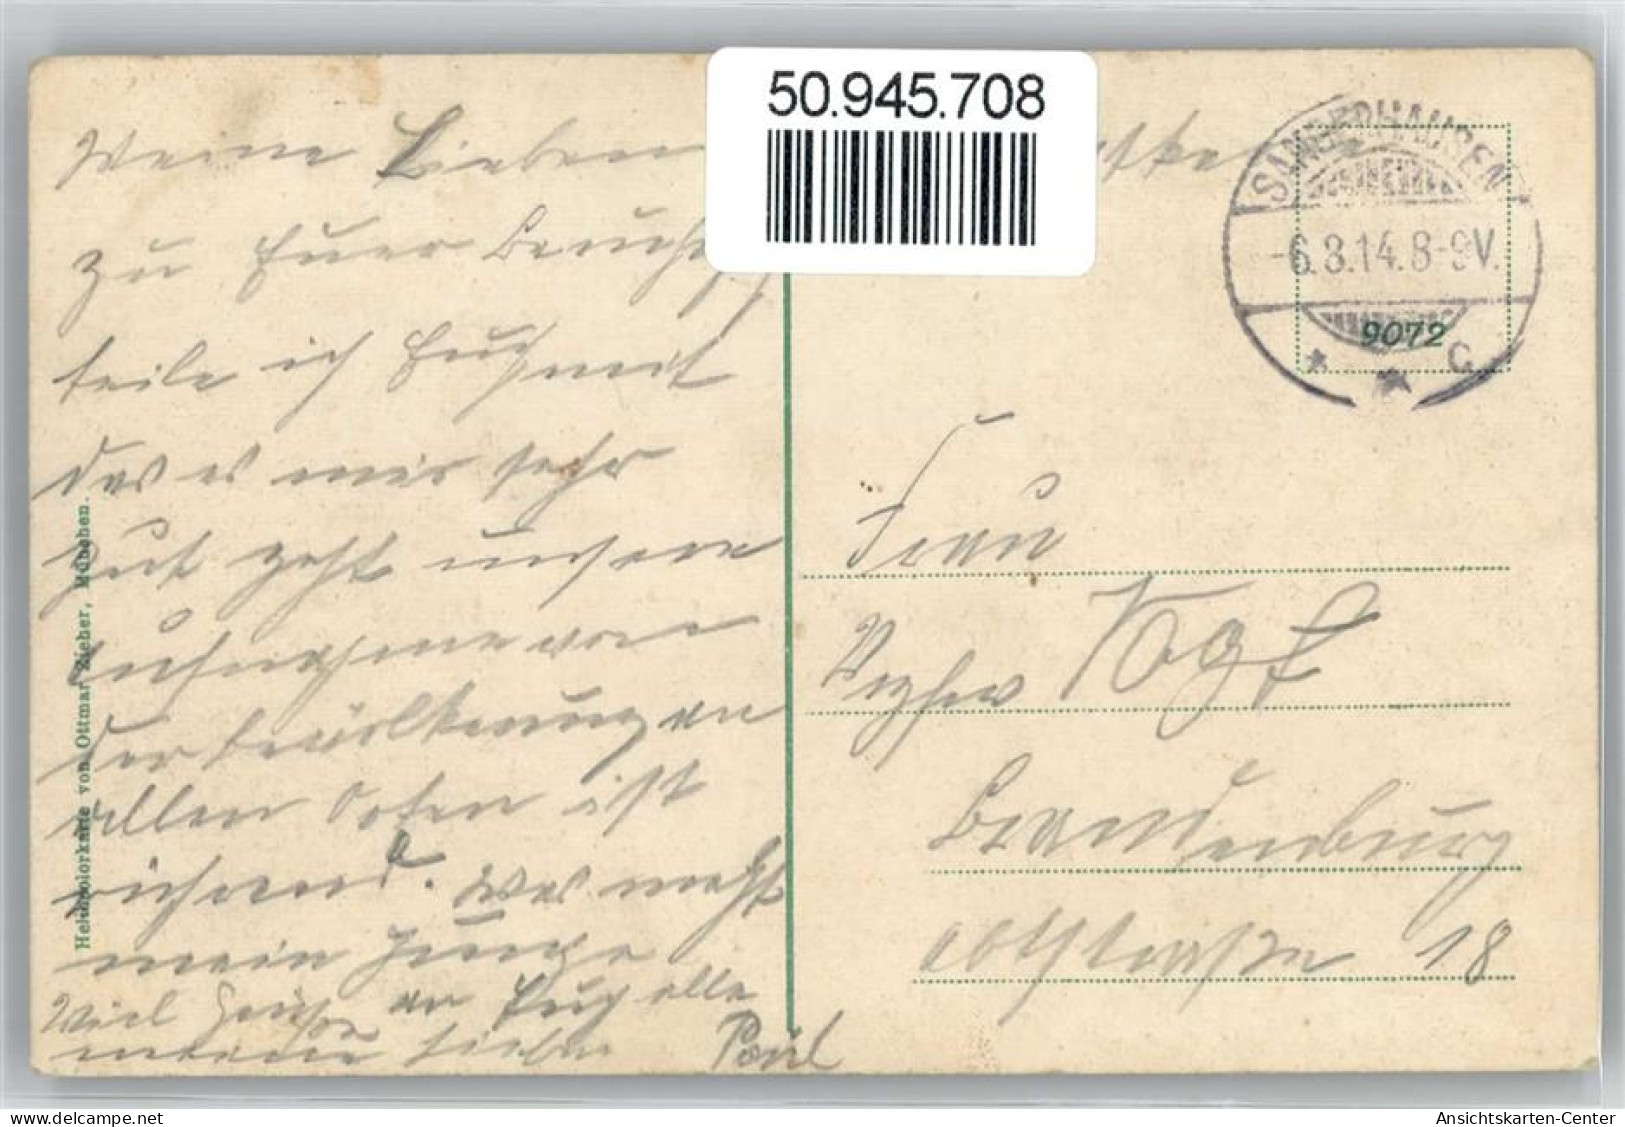 50.945.708
Meine Lieben
zu Eurer Beruhig
teile ich Euch mit
das es mir sehr
gut geht unsere
aufnahme von
der bevölkerung an
allen Orten ist
rührend. Was macht
mein Junge
Viel Grüße an Euch alle
meine Lieben Paul
Heliocolorkarte von Ottmar Zieher, München.
SANGERHAUSEN
-6.8.14.8-9V.
9072
* * C
Frau
Vogt
Brandenburg
Abtstraße 18
delcampe.net
Ansichtskarten-Center